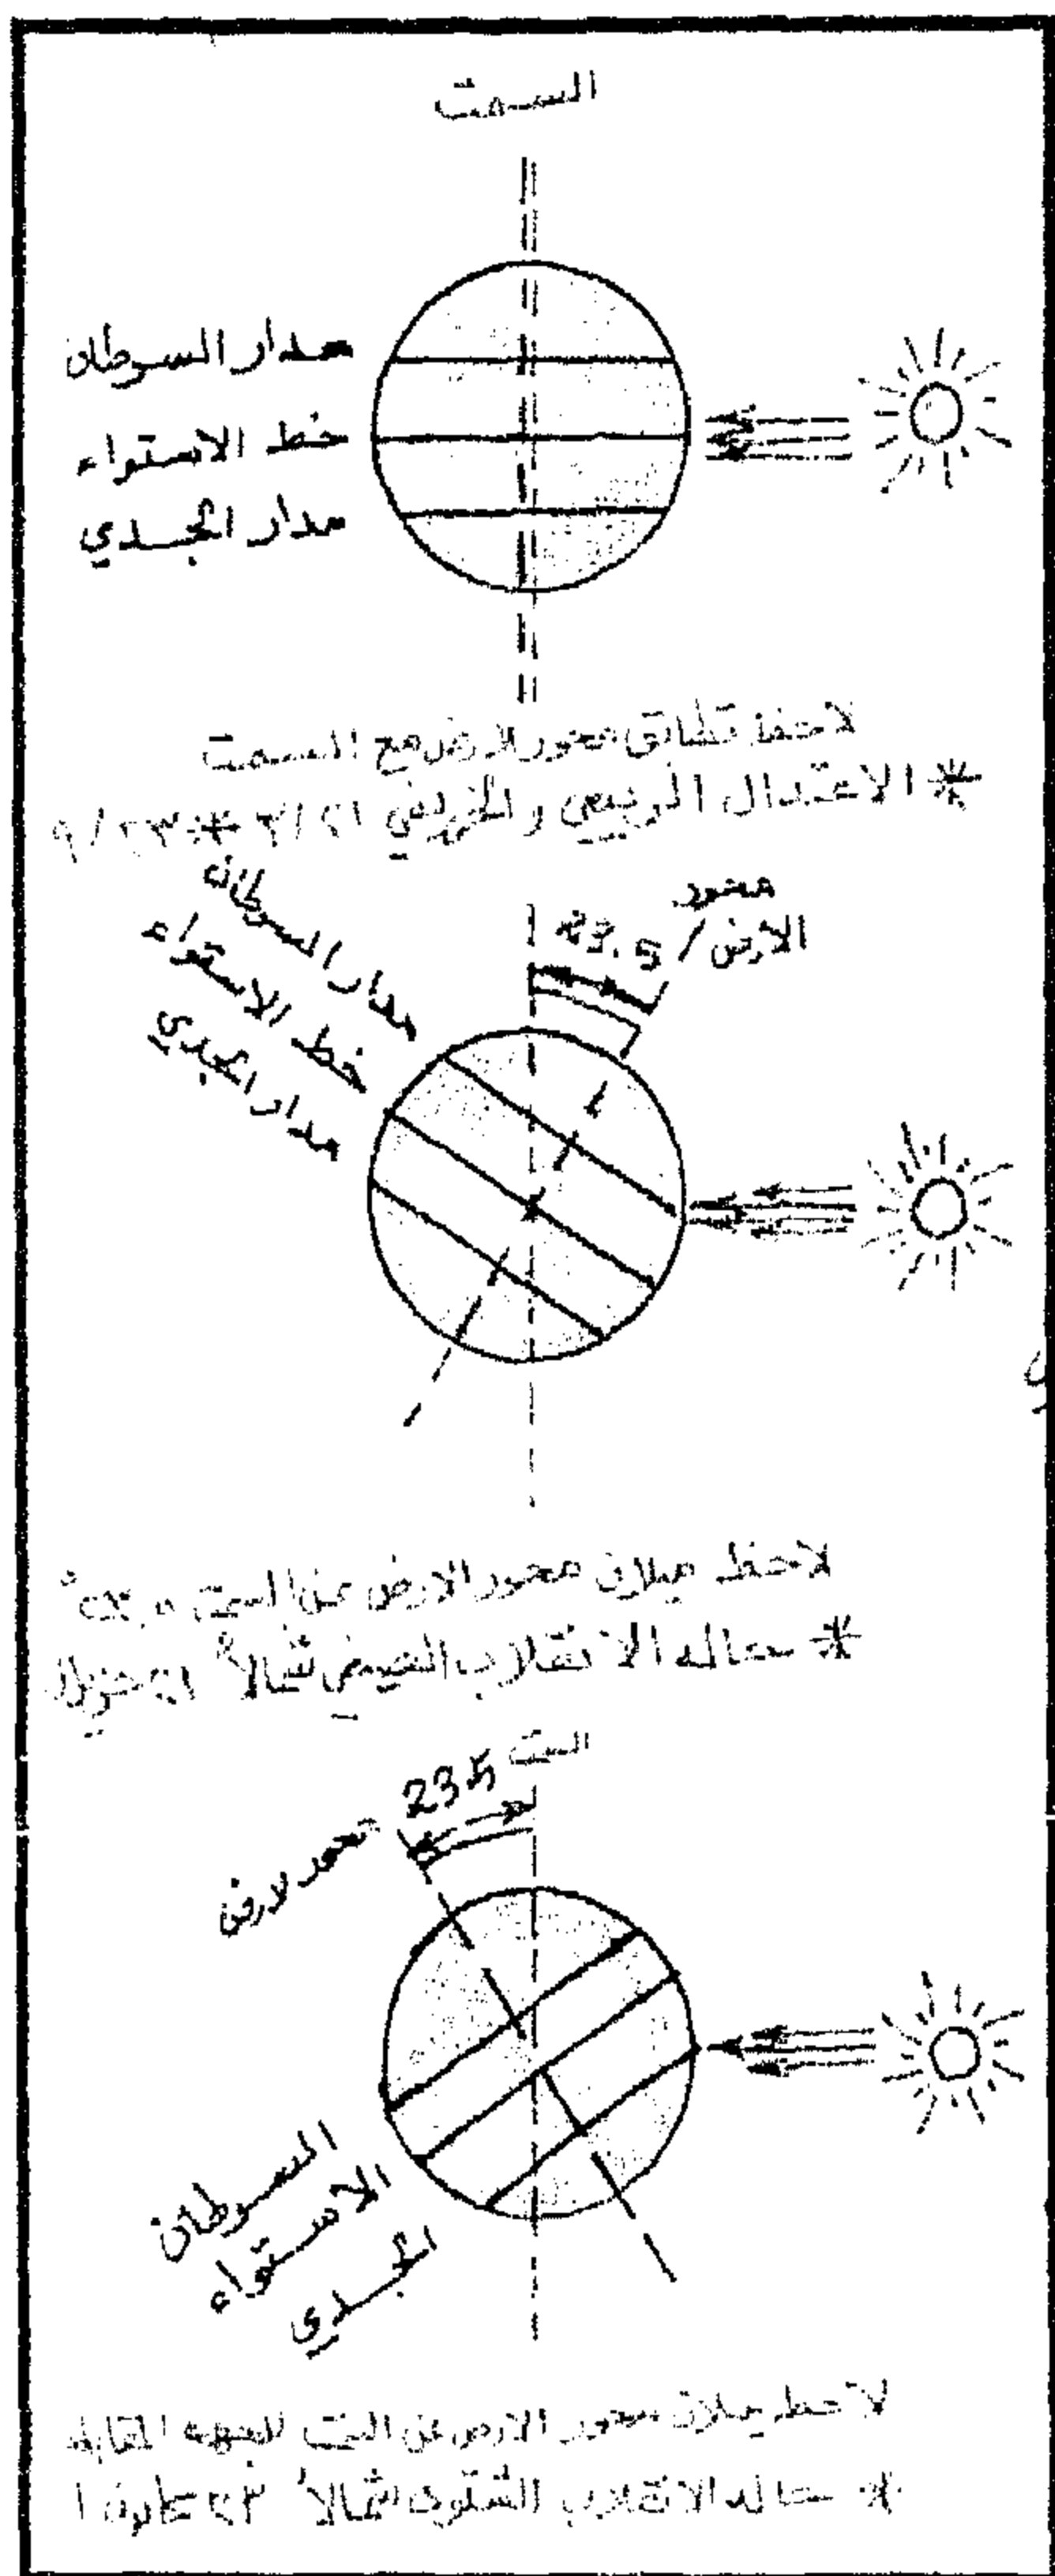 السمت
مدار السرطان
خط الاستواء
مدار الجدي
لاحظ تطابق محور الارض مع السمت
* الاعتدال الربيعي والخريفي ٣/٢١ * ٩/٢٣
محور
الأرض
23.5
مدار السرطان
خط الاستواء
مدار الجدي
لاحظ ميلان محور الارض عن السمت
* حاله الانقلاب الصيفي شمالاً ٢١ حزيران
السمت
23.5
محور لارض
السرطان
الاستواء
الجدي
لاحظ ميلان محور الارض عن السمت للجهه المقابله
* حاله الانقلاب الشتوي شمالاً ٢٣ كانون ١